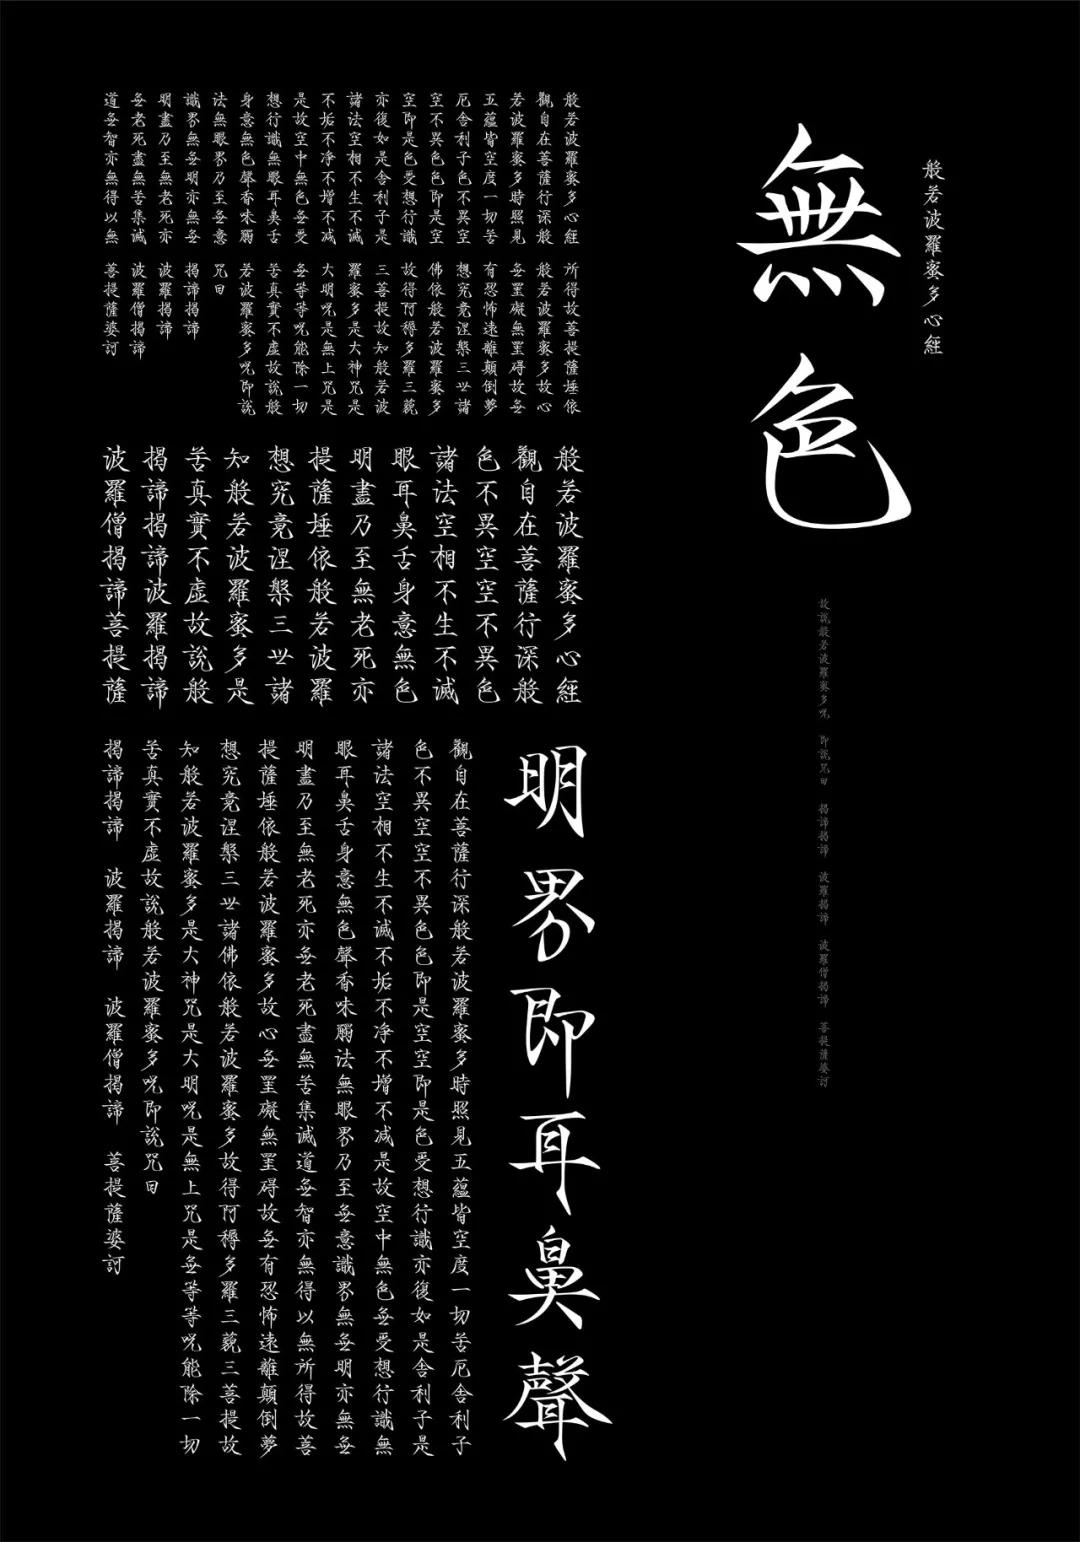 般若波羅蜜多心經
無色
故說般若波羅蜜多呪 即說咒曰 揭諦揭諦 波羅揭諦 波羅僧揭諦 菩提薩婆訶
般若波羅蜜多心經
觀自在菩薩行深般
若波羅蜜多時照見
五蘊皆空度一切苦
厄舍利子色不異空
空不異色色即是空
空即是色受想行識
亦復如是舍利子是
諸法空相不生不滅
不垢不净不增不减
是故空中無色無受
想行識無眼耳鼻舌
身意無色聲香味觸
法無眼界乃至無意
識界無無明亦無無
明盡乃至無老死亦
無老死盡無苦集滅
道無智亦無得以無
所得故菩提薩埵依
般若波羅蜜多故心
無罣礙無罣碍故無
有恐怖遠離顛倒夢
想究竟涅槃三世諸
佛依般若波羅蜜多
故得阿耨多羅三藐
三菩提故知般若波
羅蜜多是大神咒是
大明呪是無上咒是
無等等呪能除一切
苦真實不虛故說般
若波羅蜜多呪即說
咒曰
揭諦揭諦
波羅揭諦
波羅僧揭諦
菩提薩婆訶
般若波羅蜜多心經
觀自在菩薩行深般
色不異空空不異色
諸法空相不生不滅
眼耳鼻舌身意無色
明盡乃至無老死亦
提薩埵依般若波羅
想究竟涅槃三世諸
知般若波羅蜜多是
苦真實不虛故說般
揭諦揭諦波羅揭諦
波羅僧揭諦菩提薩
明界即耳鼻聲
觀自在菩薩行深般若波羅蜜多時照見五蘊皆空度一切苦厄舍利子
色不異空空不異色色即是空空即是色受想行識亦復如是舍利子是
諸法空相不生不滅不垢不净不增不减是故空中無色無受想行識無
眼耳鼻舌身意無色聲香味觸法無眼界乃至無意識界無無明亦無無
明盡乃至無老死亦無老死盡無苦集滅道無智亦無得以無所得故菩
提薩埵依般若波羅蜜多故心無罣礙無罣碍故無有恐怖遠離顛倒夢
想究竟涅槃三世諸佛依般若波羅蜜多故得阿耨多羅三藐三菩提故
知般若波羅蜜多是大神咒是大明呪是無上咒是無等等呪能除一切
苦真實不虛故說般若波羅蜜多呪即說咒曰
揭諦揭諦 波羅揭諦 波羅僧揭諦 菩提薩婆訶